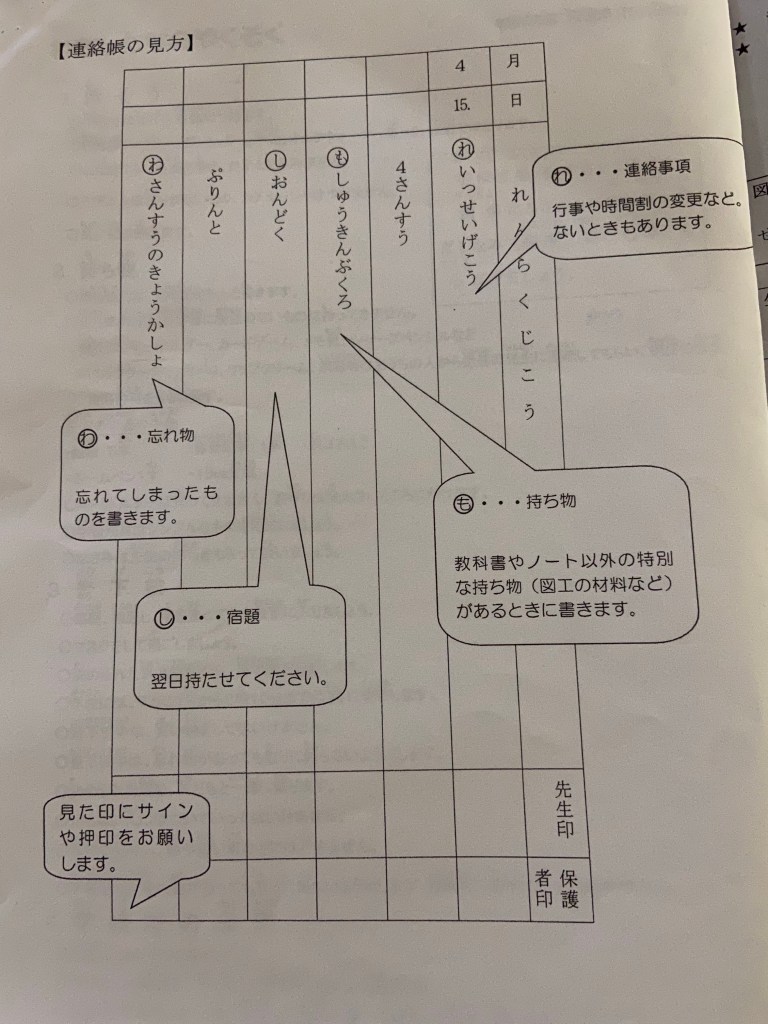 【連絡帳の見方】
月
日
れんらくじこう
先生印
保護
者印
4
15.
㋹いっせいげこう
4さんすう
㋲しゅうきんぶくろ
㋛おんどく
ぷりんと
㋻さんすうのきょうかしょ
れ・・・連絡事項
行事や時間割の変更など。
ないときもあります。
わ・・・忘れ物
忘れてしまったも
のを書きます。
も・・・持ち物
教科書やノート以外の特別
な持ち物（図工の材料など）
があるときに書きます。
し・・・宿題
翌日持たせてください。
見た印にサイン
や押印をお願い
します。
★
★
図